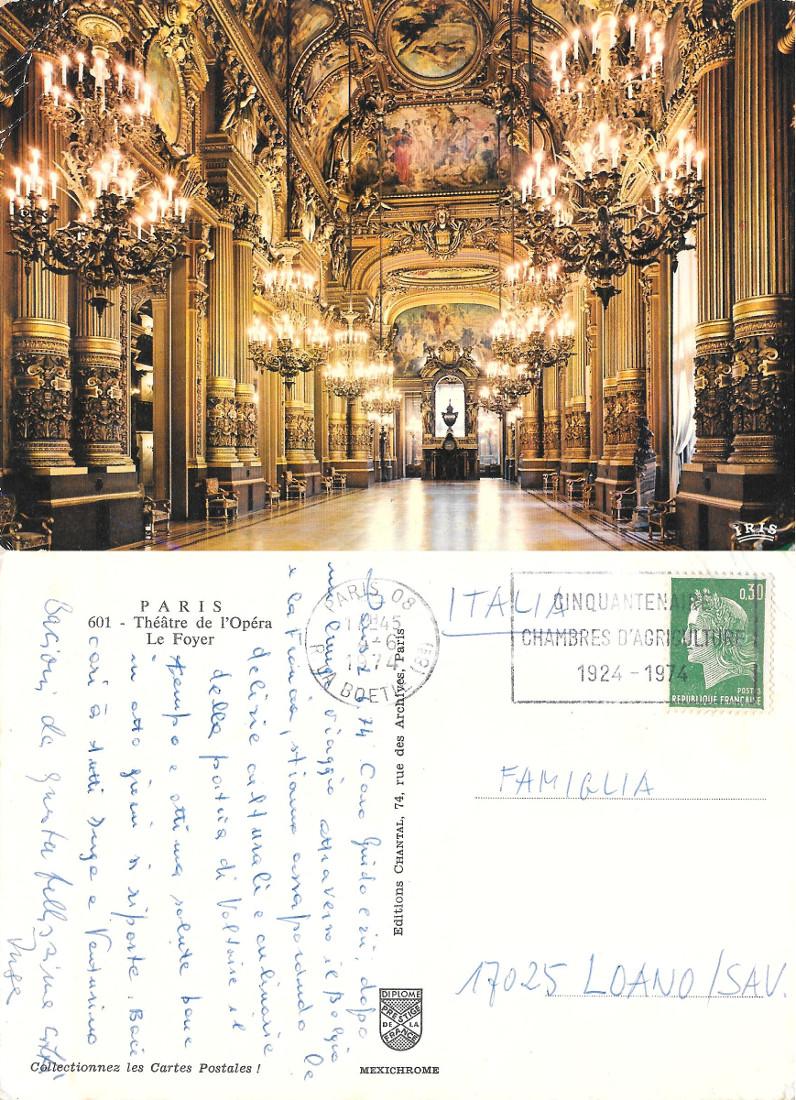 IRIS
PARIS
601 - Théâtre de l'Opéra
Le Foyer
PARIS 08
1974
R. LA BOETIE (8E)
CINQUANTENAIRE
CHAMBRES D'AGRICULTURE
1924 - 1974
0,30
POSTES
REPUBLIQUE FRANÇAISE
ITALIA
FAMIGLIA
17025 LOANO/SAV.
Editions CHANTAL, 74, rue des Archives, Paris
74 Caro Guido e zii, dopo
un lungo viaggio attraverso il Belgio
e la Francia, stiamo assaporando le
delizie culturali e culinarie
della patria di Voltaire il
tempo è ottimo salute bene
in otto giorni si riparte. Baci
cari a tutti Inga e Venturino
Bacioni da questa bellissima città
Inga
DIPLOME
PRESTIGE
DE LA
FRANCE
MEXICHROME
Collectionnez les Cartes Postales !